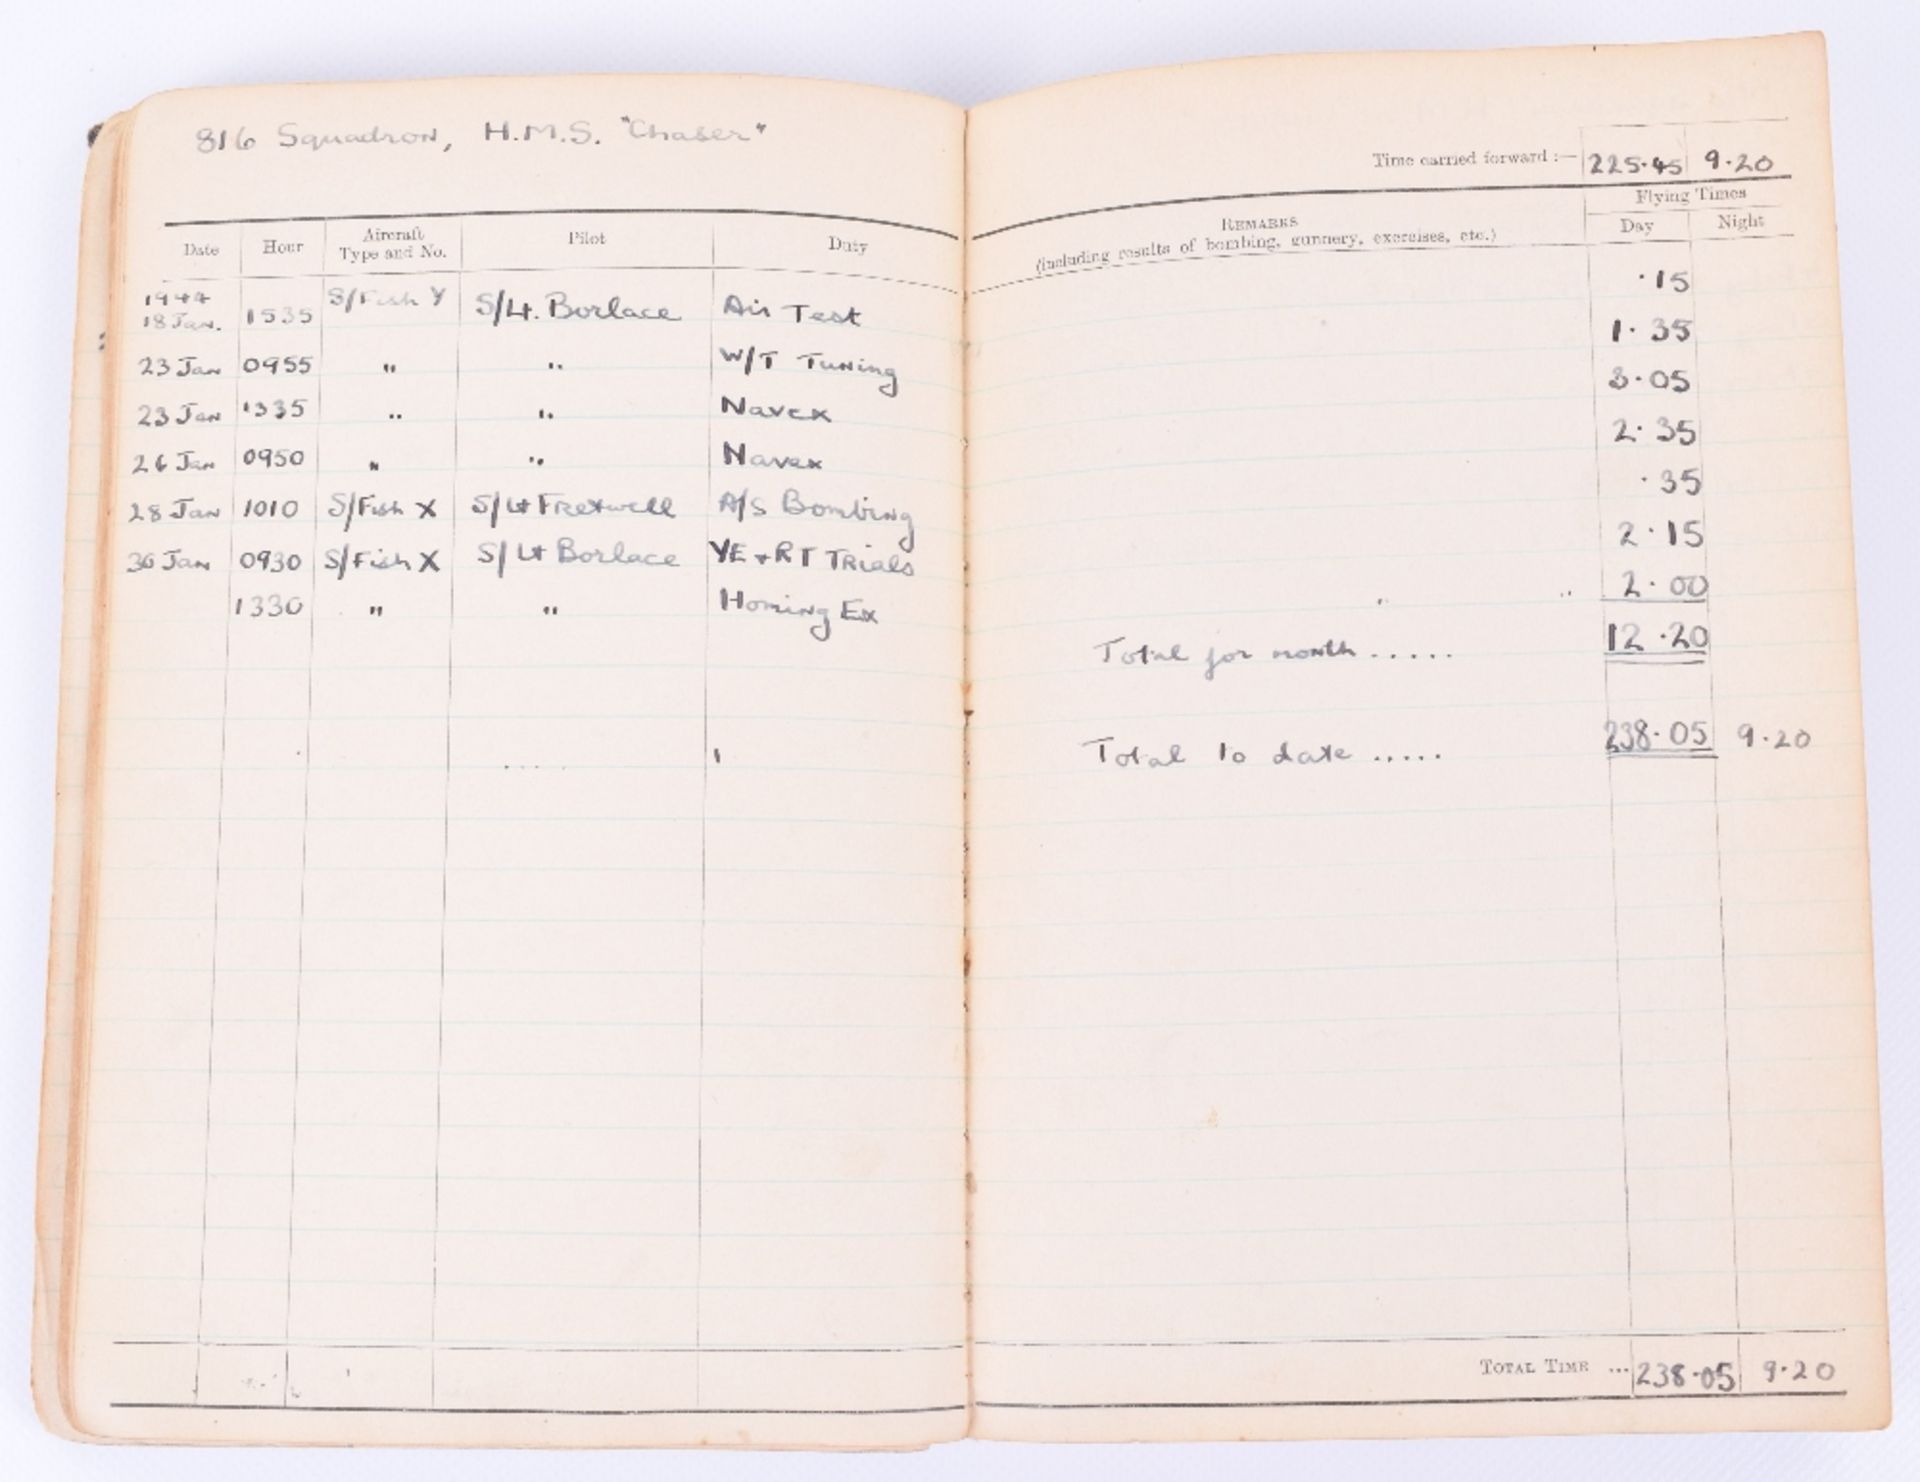 816 Squadron, H.M.S. "Chaser"
Date Hour Aircraft Type and No. Pilot Duty
1944
18 Jan. 1535 S/Fish Y S/Lt. Borlace Air Test
23 Jan 0955 " " W/T Tuning
23 Jan 1335 " " Navex
26 Jan 0950 " " Navex
28 Jan 1010 S/Fish X S/Lt Fretwell A/S Bombing
30 Jan 0930 S/Fish X S/Lt Borlace YE + RT TRials
1330 " " Homing Ex
Time carried forward :— 225.45 9.20
REMARKS
(including results of bombing, gunnery, exercises, etc.)
Flying Times
Day Night
.15
1.35
3.05
2.35
.35
2.15
2.00
Total for month ..... 12.20
Total to date ..... 238.05 9.20
TOTAL TIME ... 238.05 9.20